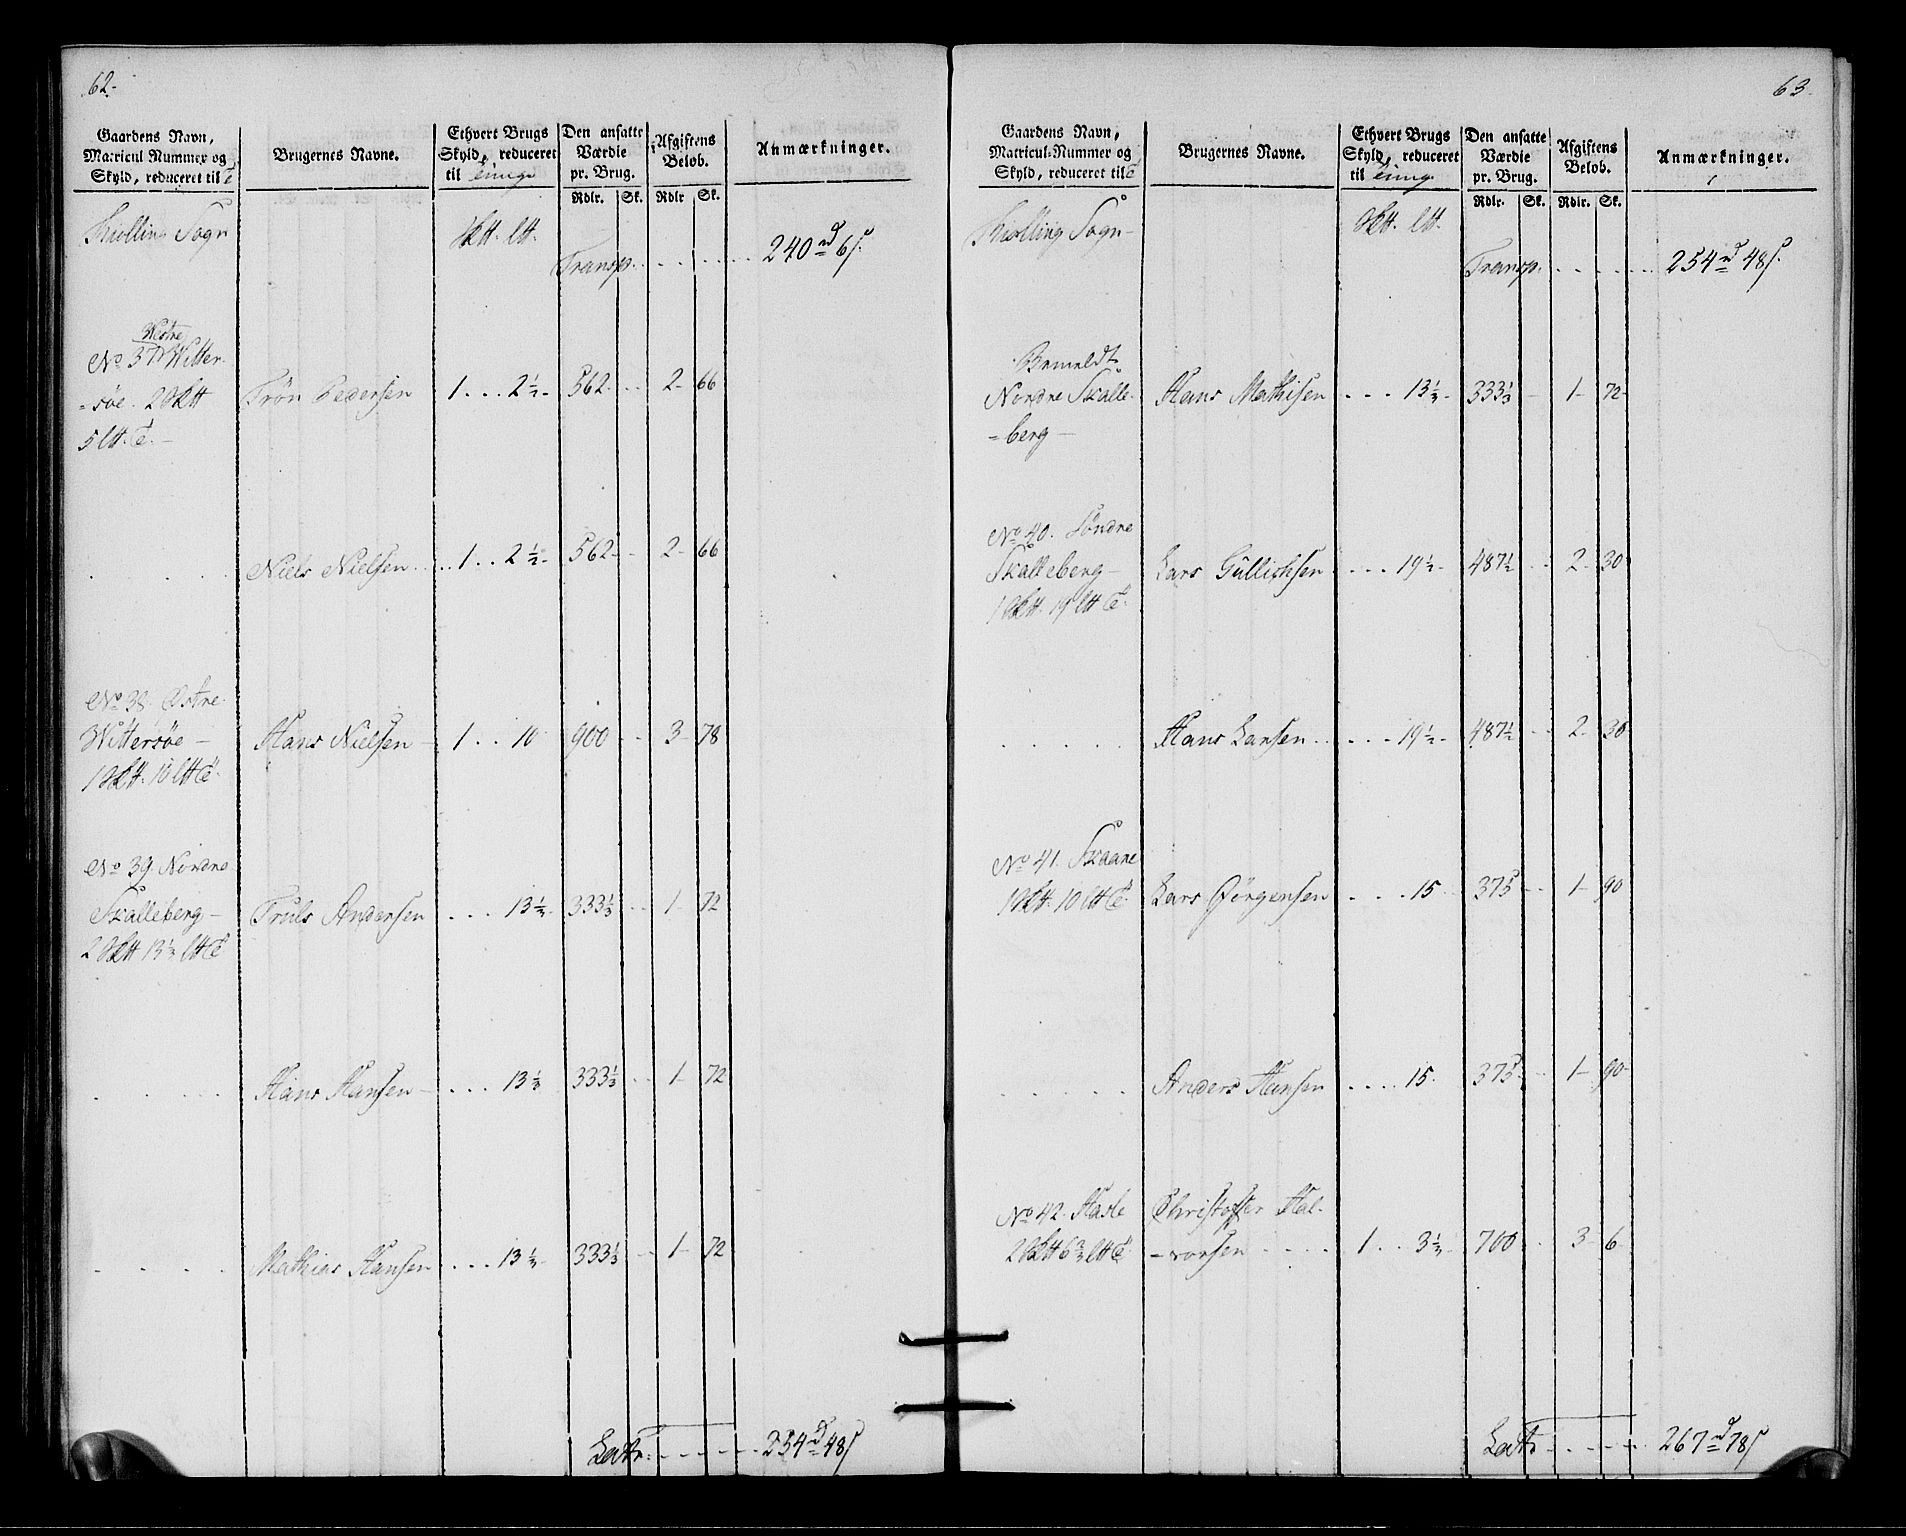 62.
Gaardens Navn,
Matricul Nummer og
Skyld, reduceret til
Brugernes Navne.
Ethvert Brugs
Skyld, reduceret
til
Den ansatte
Værdie
pr. Brug.
Afgiftens
Beløb.
Anmærkninger.
Rdlr. Sk. Rdlr Sk.
Sogn
Transp. 240 rd 6 s.
Westre
No 37 Witter-
=søe. 2
5
Trön Pedersen 1 . . 2½ 562 2 66
Niels Nielsen 1 . . 2½ 562 2 66
No 38. Østre
Wittersøe
1 10
Hans Nielsen 1 . . 10 900 3 78
No 39. Nordre
Skalleberg
2 13⅓
Truls Andersen . . . 13⅓ 333⅓ 1 72
Hans Hansen . . . 13⅓ 333⅓ 1 72
Mathias Hansen . . . 13⅓ 333⅓ 1 72
Latr. 254 rd 48 s
63.
Gaardens Navn,
Matricul-Nummer og
Skyld, reduceret til
Brugernes Navne.
Ethvert Brugs
Skyld, reduceret
til
Den ansatte
Værdie
pr. Brug.
Afgiftens
Beløb.
Anmærkninger.
Rdlr. Sk. Rdlr. Sk.
Sogn
Transp. 254 rd 48 s.
Bemeldt
Nordre Skalle-
=berg
Hans Mathisen . . . 13⅓ 333⅓ 1 72
No 40. Söndre
Skalleberg
1 19
Lars Gullichsen . . . 19½ 487½ 2 30
Hans Larsen . . . 19½ 487½ 2 30
No 41. Skaane
1 10
Lars Jörgensen . . . 15 375 1 90
Anders Hansen . . . 15 375 1 90
No 42. Hasle
2 6⅔
Christoffer Hal-
=vorsen 1 . . 3⅓ 700 3 6
Latr 267 rd 78 s